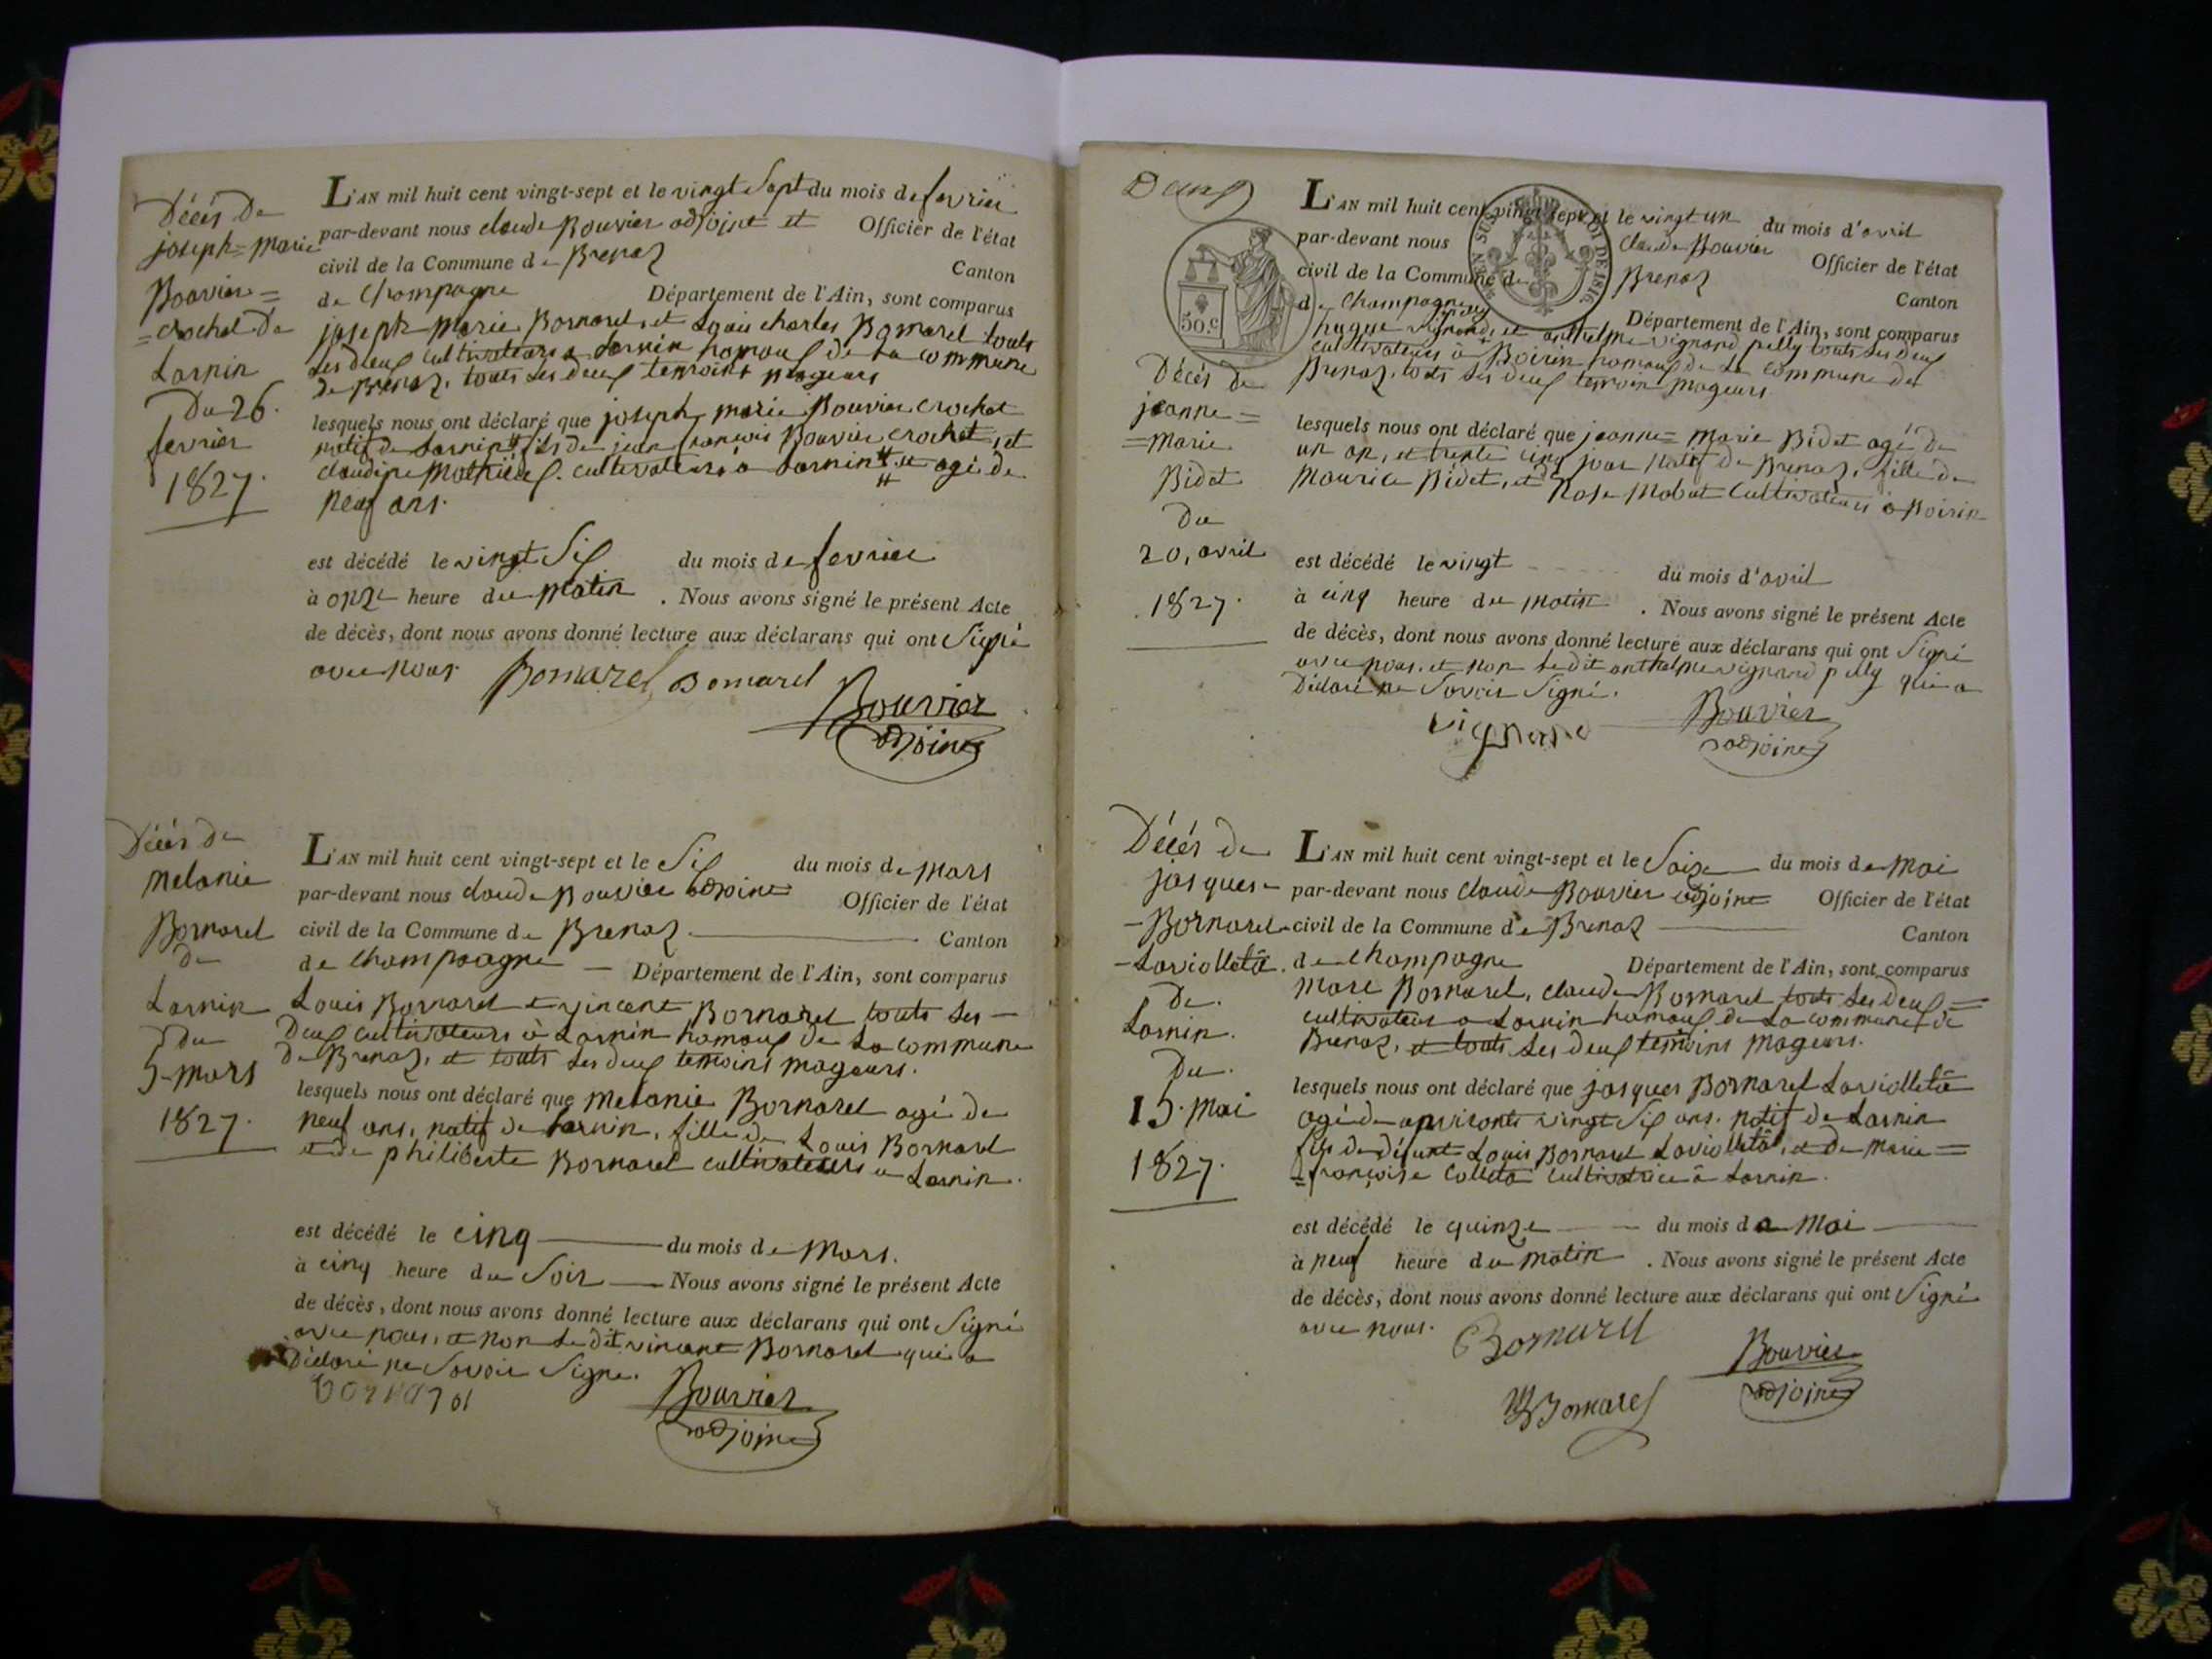 Décés De
joseph=marie
Bouvier=
=crochet De
Lornin
Du 26.
fevrier
1827.
L'AN mil huit cent vingt-sept et le vingt Sept du mois de fevrier
par-devant nous claude Bouvier adjoint et Officier de l'état
civil de la Commune de Brenaz Canton
de Champagne Département de l'Ain, sont comparus
joseph marie Bornarel, et Louis charles Bornarel touts
Les deux cultivateurs a Lornin hamaux de La commune
de Brenaz, touts Les deux temoins mageurs
lesquels nous ont déclaré que joseph marie Bouvier crochet
natif de Lornin # fils de jean francois Bouvier crochet, et
claudine cultivateurs a Lornin # et agé de
neuf ans.
est décédé le vingt Six du mois de fevrier
à onze heure du matin . Nous avons signé le présent Acte
de décès, dont nous avons donné lecture aux déclarans qui ont Signé
avec nous. Bornarel Bornarel
Bouvier
adjoint
Décés De
melanie
Bornarel
De
Lornin
Du
5-mars
1827.
L'AN mil huit cent vingt-sept et le Six du mois de mars
par-devant nous claude Bouvier adjoint Officier de l'état
civil de la Commune de Brenaz Canton
de Champagne Département de l'Ain, sont comparus
Louis Bornarel et vincent Bornarel touts Les
Deux cultivateurs à Lornin hamaux de La commune
De Brenaz, et touts Les deux temoins mageurs.
lesquels nous ont déclaré que melanie Bornarel agé de
neuf ans, natif de Lornin, fille de Louis Bornarel
et de philiberte Bornarel cultivateurs a Lornin.
est décédé le cinq du mois de Mars.
à cinq heure du Soir Nous avons signé le présent Acte
de décès, dont nous avons donné lecture aux déclarans qui ont Signé
avec nous, et non Le dit vincent Bornarel qui a
Déclaré ne Savoir Signe.
bornarel Bouvier
adjoint
L'AN mil huit cent vingt-sept et le vingt un du mois d'avril
par-devant nous claude Bouvier Officier de l'état
civil de la Commune de Brenaz Canton
de Champagne Département de l'Ain, sont comparus
hugue vignard, et anthelme vignard pelly touts Les deux
cultivateurs à Boirin hamaux de La commune de
Brenaz, touts Les deux temoin mageurs
50.c
LOI DE 1816
Décés De
jeanne=
=marie
Bidet
Du
20, avril
1827.
lesquels nous ont déclaré que jeanne=marie Bidet agé de
un an, et trente cinq jour natif de Brenaz, fille de
Maurice Bidet, et Rose Mobut cultivateurs a Boirin
est décédé le vingt du mois d'avril
à cinq heure du matin . Nous avons signé le présent Acte
de décès, dont nous avons donné lecture aux déclarans qui ont Signé
avec nous. et non Le dit anthelme vignard pelly qui a
Déclaré ne Savoir Signé.
vignard Bouvier
adjoint
Décés De
jasques
-Bornarel
-Laviolletâ.
De.
Lornin.
Du.
15. mai
1827.
L'AN mil huit cent vingt-sept et le Saize du mois de Mai
par-devant nous claude Bouvier adjoint Officier de l'état
civil de la Commune de Brenaz Canton
de Champagne Département de l'Ain, sont comparus
Marc Bornarel, claude Bornarel touts Les deux=
cultivateur a Lornin hamaux de La commune de
Brenaz, et touts Les deux temoins mageurs.
lesquels nous ont déclaré que jasques Bornarel Laviolletâ
agé de anvironts vingt Six ans. natif de Lornin
fils de défunt Louis Bornarel Laviolletâ, et de marie=
=françoise Colleta cultivatrice â Lornin.
est décédé le quinze du mois de Mai
à neuf heure du matin . Nous avons signé le présent Acte
de décès, dont nous avons donné lecture aux déclarans qui ont Signé
avec nous. Bornarel Bouvier
adjoint
Bornarel